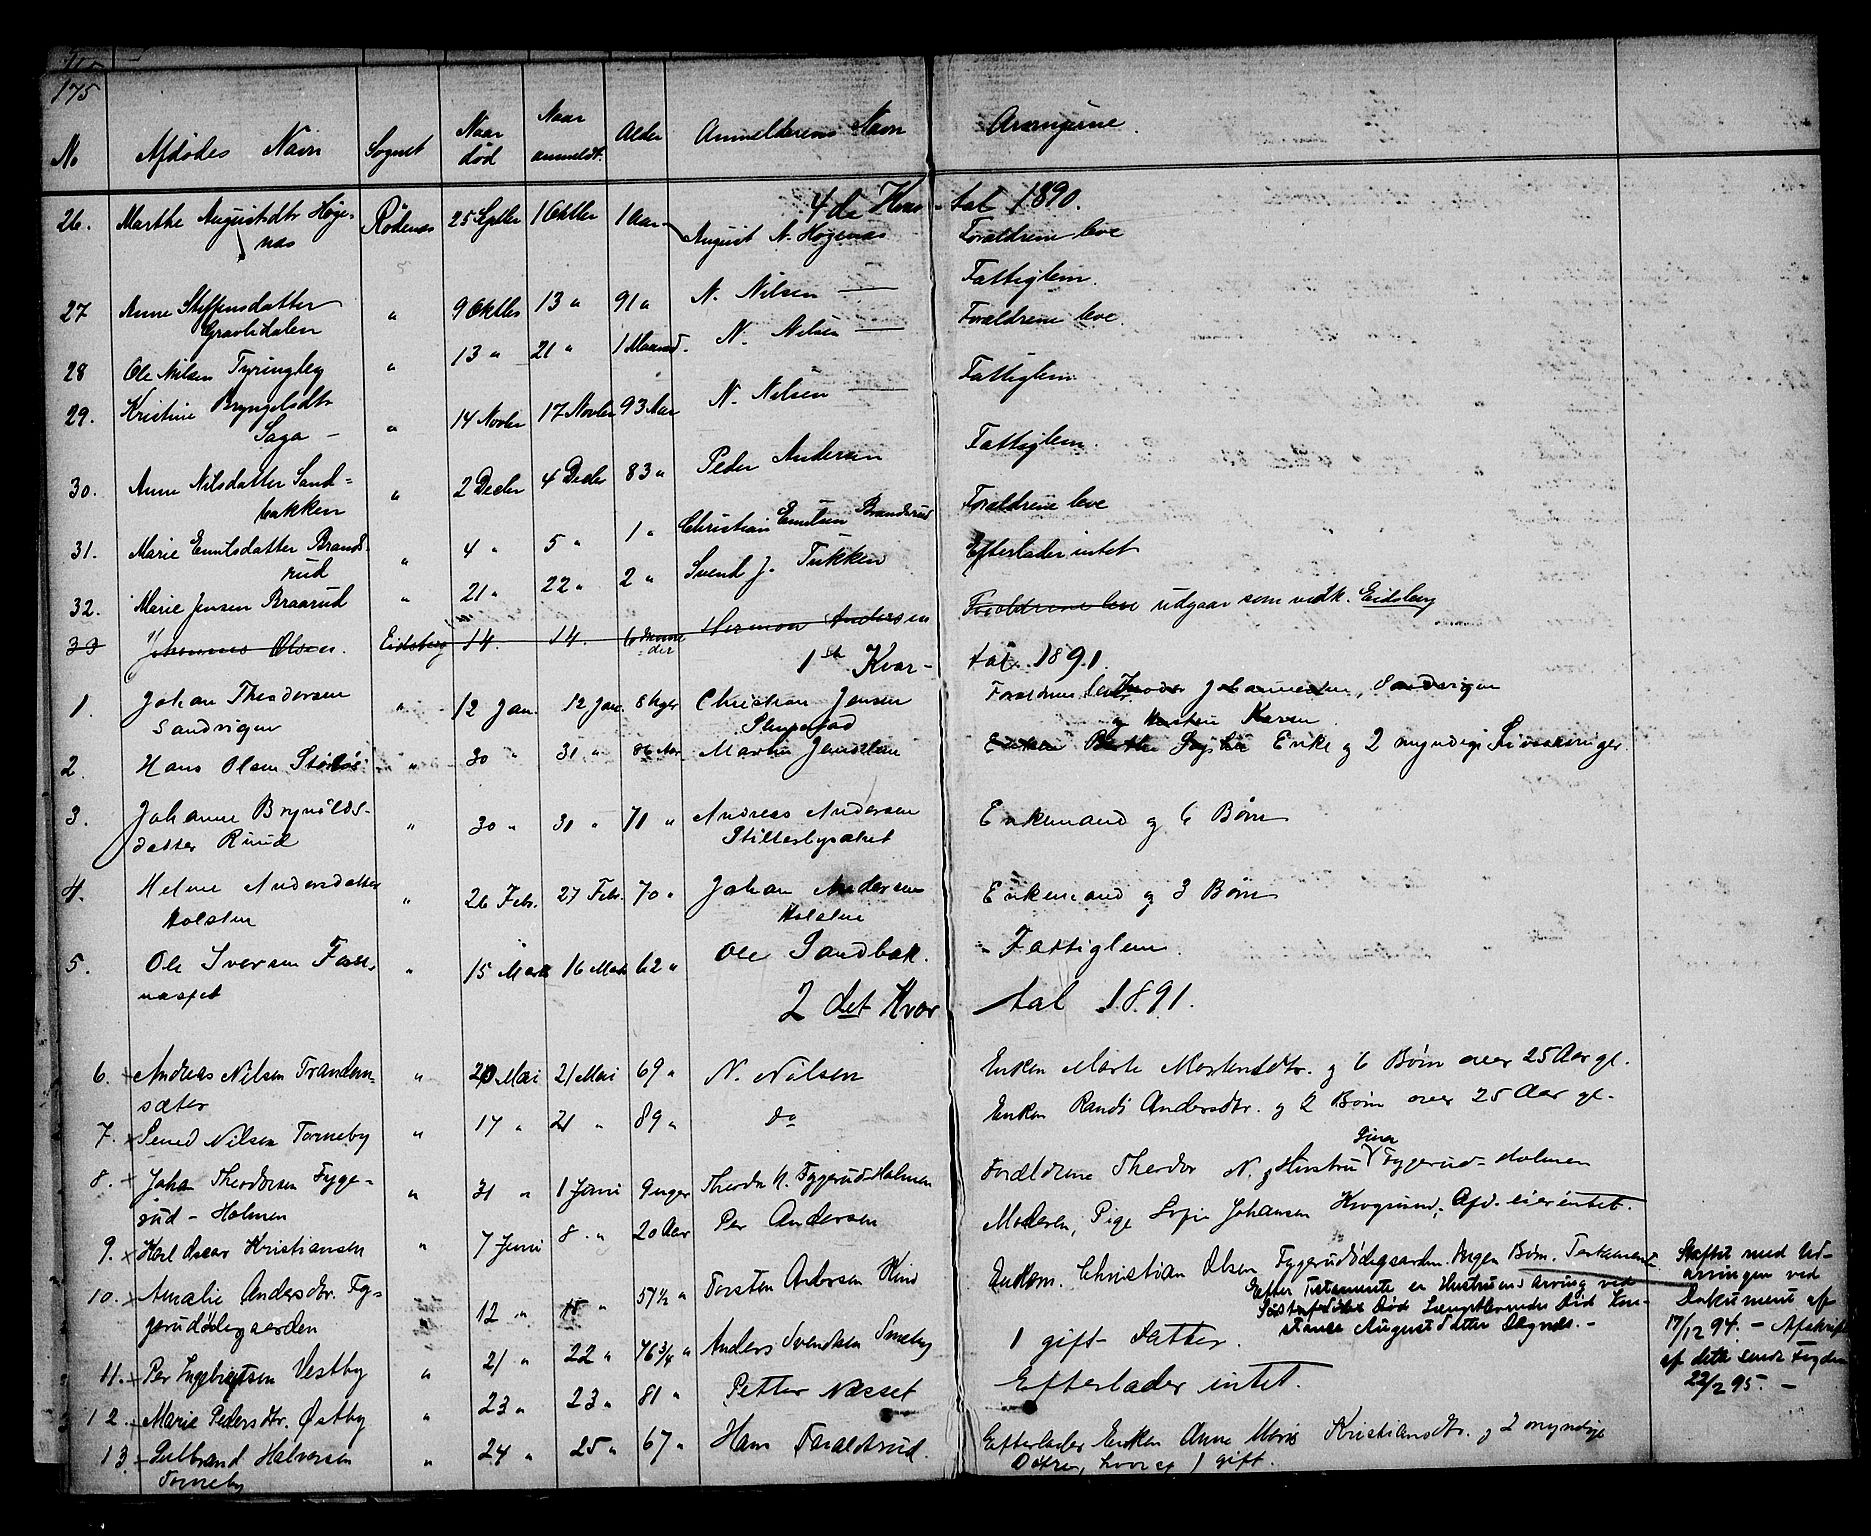 175
No Afdødes Navn Sognet Naar død Naar anmeldt. Alder Anmelderens Navn Arvingerne.
4de Kvar-tal 1890.
26. Marthe Augustsdtr Høge- Rödenæs 25 Septbr 1 Oktbr 1 Aar August N. Høgenæs Forældrene leve
næs
27 Anne Steffensdatter " 9 Oktbr 13 " 91 " N. Nilsen Fattiglem.
Gravlidalen
28 Ole Nilsen Tyringby " 13 " 21 " 1 Maaned. N. Nilsen Forældrene leve.
29. Kristine Bryngelsdtr " 14 Novbr 17 Novbr 93 Aar N. Nilsen Fattiglem
Saga
30. Anne Nilsdatter Sand= " 2 Decbr 4 Decbr 83 " Peder Andersen Fattiglem.
bakken
31. Marie Emilsdatter Brands- " 4 " 5 " 1 " Christian Emilsen Brandsrud Forældrene leve
rud
32. Marie Jensen Braarud " 21 " 22 " 2 " Svend J. Tukken Efterlader intet
33 Johannes Olsen. Eidsberg 14. 14. 6 Maane Herman Andersen Forældrene leve udgaar som vedk. Eidsberg
der
1ste Kvar-tal 1891.
1. Johan Theodorsen " 12 Jan. 12 Jan. 8 Uger Christian Jensen Forældrene Theodor Johannesen, Sandvigen
Sandvigen og Karen.
2. Hans Olsen " 30 " 31 " 86 Aar Martin Enke og 2 myndige Livsarvinger
3. Johanne Brynilds- " 30 " 30 " 71 " Andreas Andersen Enkemand og 6 Børn
datter Ruud
4. Helene Andersdatter " 26 Feb. 27 Feb. 70 " Johan Andersen Enkemand og 3 Børn
Holsten Holsten
5. Ole Iversen " 15 Marts 16 Marts 62 " Ole Sandbæk. Fattiglem.
næsset
2det Kvar-tal 1891.
6. Andreas Nilsen Trandem- " 20 Mai 21 Mai 69 " N. Nilsen Enken Marte Mortensdtr. og 6 Børn over 25 Aar gl.
sæter
7. Svend Nilsen Torneby " 17 " 21 " 89 " do Enken Randi Andersdtr. og 2 Børn over 25 Aar gl.
8. Johan Theodorsen Fyge- " 31 " 1 Juni 9 uger Theodor N. Fyger​ud-Holmen Forældrene Theodor N. og Hustru Gina Fygerud-Holmen
rud - Holmen
9. Karl Oscar Kristiansen " 7 Juni 8 " 20 Aar Per Andersen Moderen, Pige Sofie Johansen Krogsund; Afd. eier intet.
10. Amalie Andersdtr. Fy- " 12 " 15 " 57½ " Torsten Andersen Enkem. Christian Olsen Fygerudødegaarden. Ingen Børn. Testamente
gerudødegaarden Efter Testamente er Hustruens arving ved
Død Længstlevendes Død Kon-
stance Augustdatter
Skiftet med Ud-
arvingen ved
Dokument af
17/12 94. - Afskrift
af dette sendt Fogden
22/2 95. -
11. Per Ingebrigtsen Vestby " 21 " 22 " 76 3/4 " Anders Svendsen 1 gift Datter.
12. Marie Pedersdtr. Østby " 23 " 23 " 81 " Petter Næsset Efterlader intet.
13. Gulbrand Halvorsen " 24 " 25 " 67 " Hans Faraldsrud. Efterlader Enken Anne Marie Kristiansdtr. og 2 myndige
Torneby Døtre, hvoraf 1 gift.